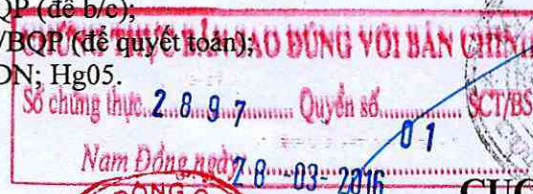 QP (để b/c);
/BQP (để quyết toán);
ĐN; Hg05.
CHỨNG THỰC BẢN SAO ĐÚNG VỚI BẢN CHÍNH
Số chứng thực 2 8 9 7 Quyển số 01 SCT/BS
Nam Đông ngày 28 -03- 2016